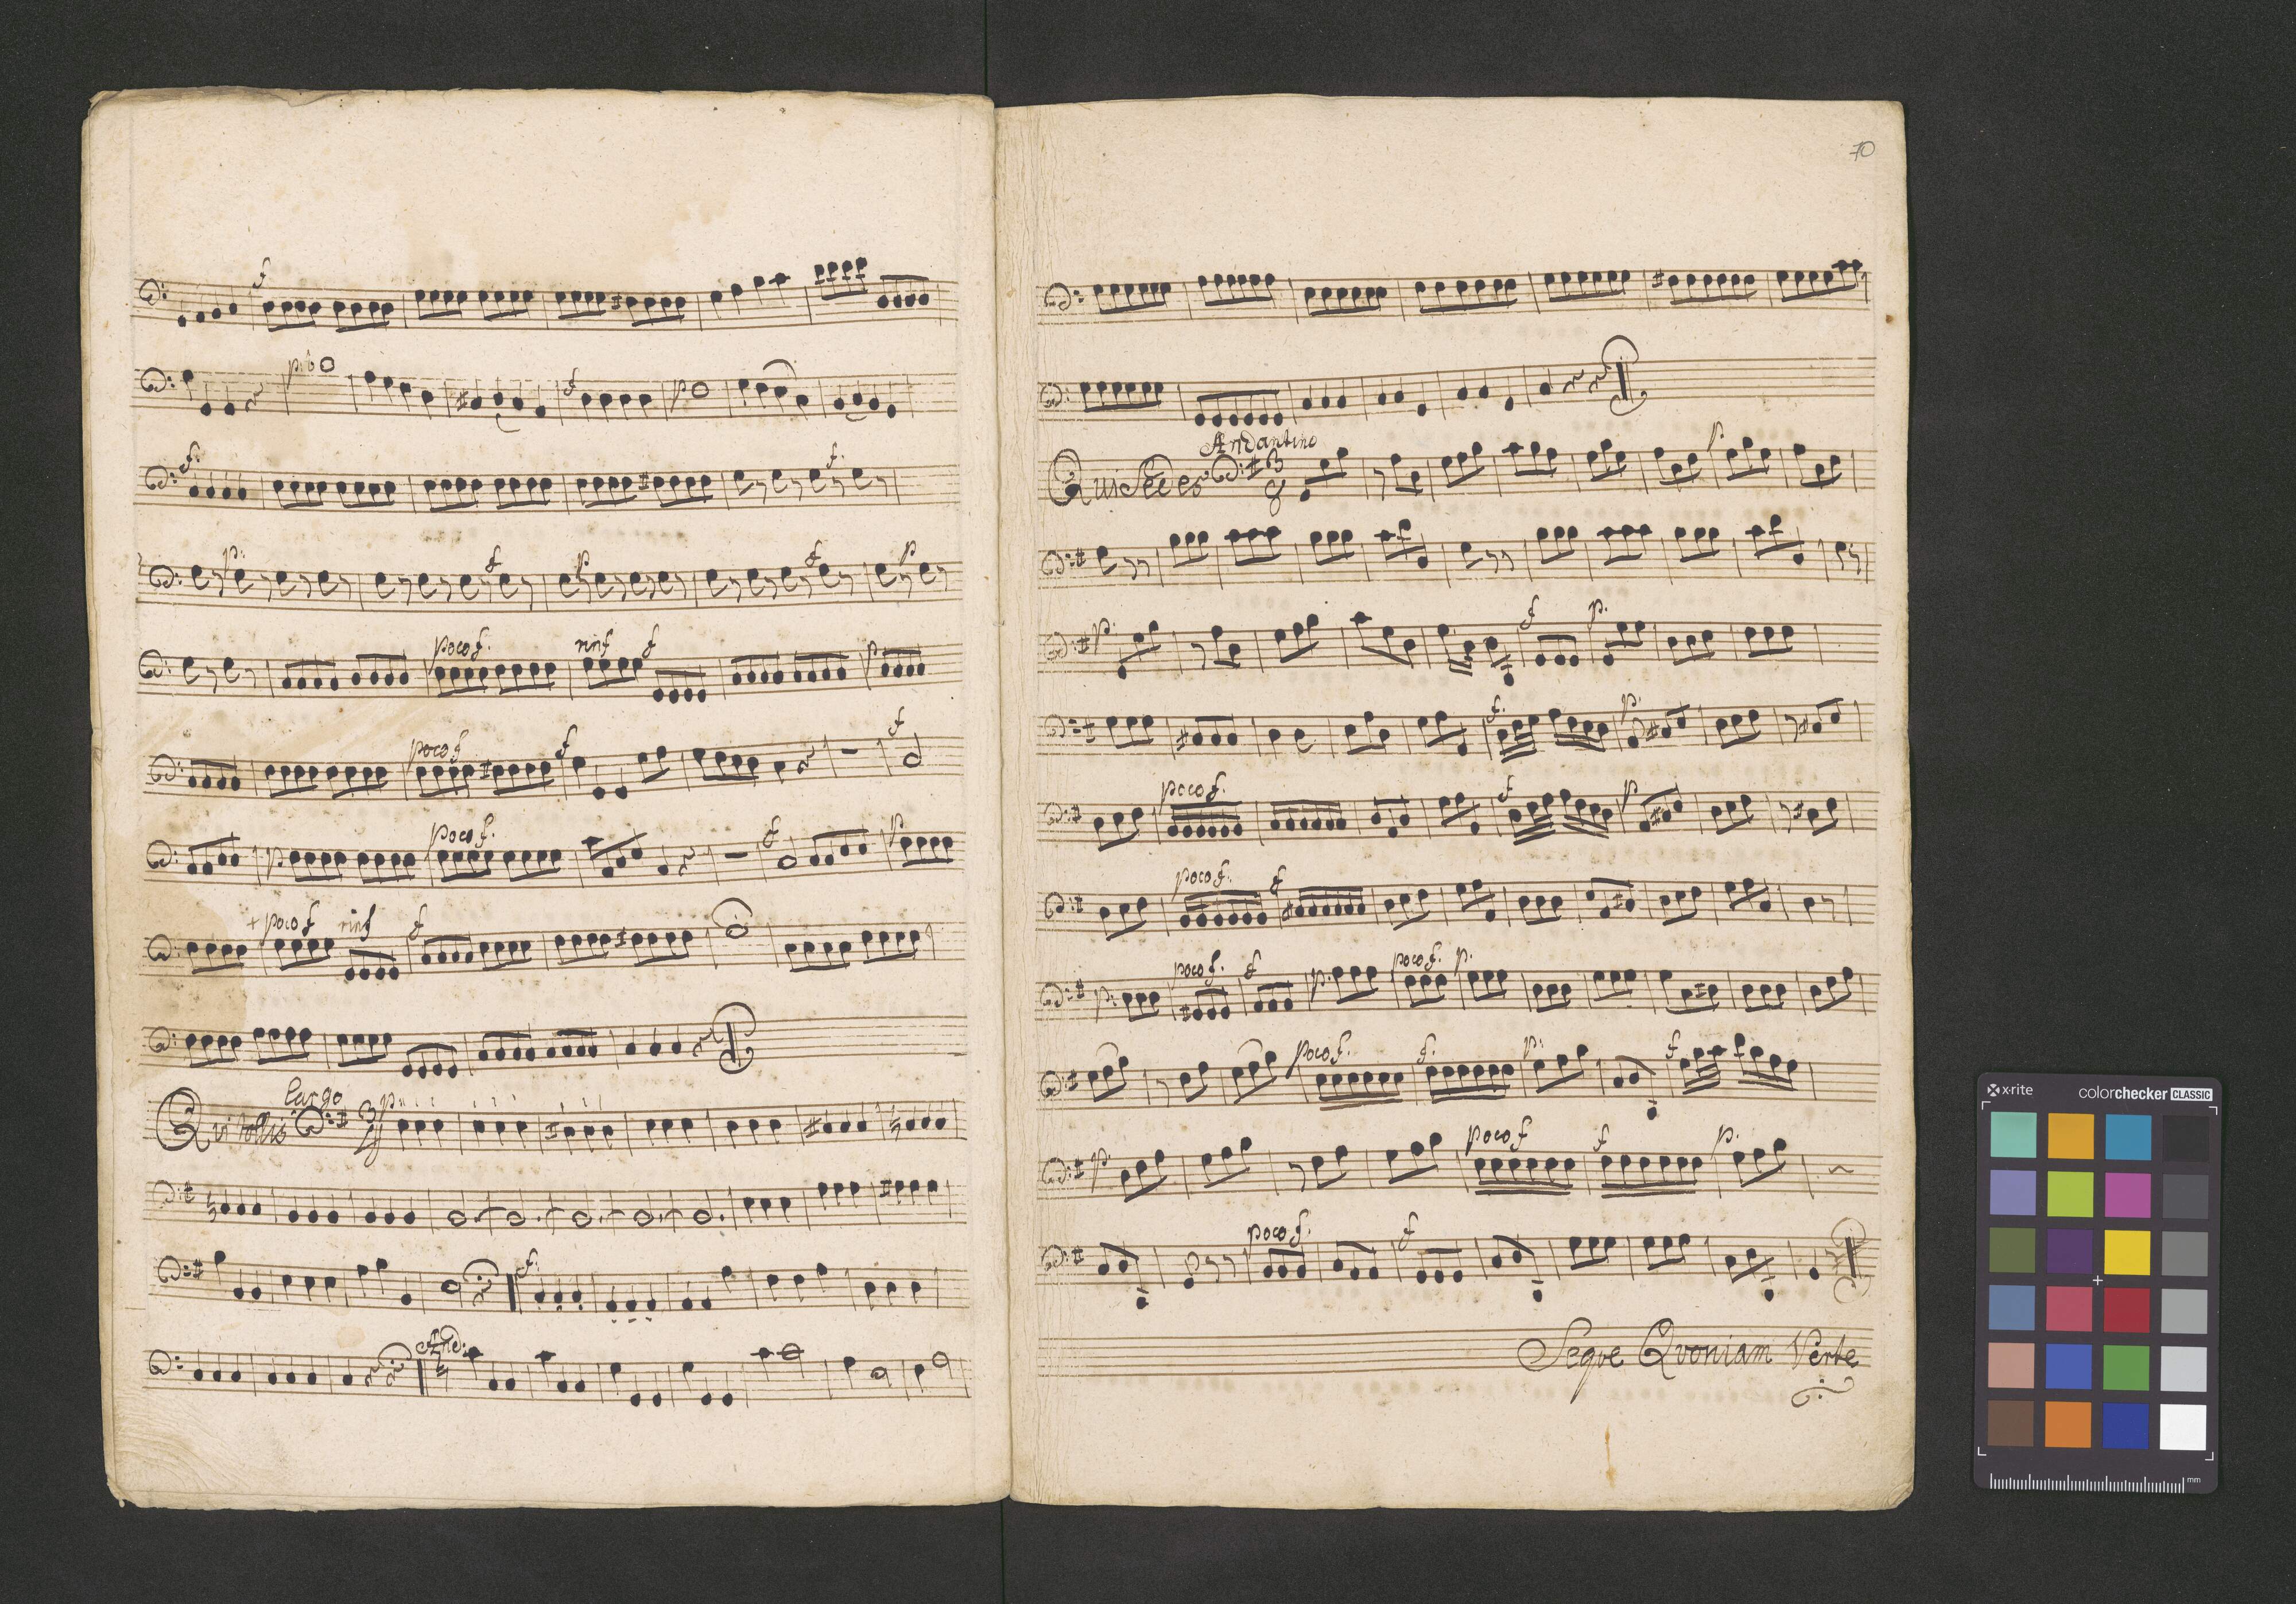 f
p.
f
p
f.
f.
p:
f
p
f
p
poco f.
rinf
f
p
poco f
f
f
p
poco f.
f
p
+ poco f
rinf
f
Largo
Qui tollis
3
p
f.
And:
70
Andantino
Qui Sedes
3
8
p.
p.
f
p.
f.
p.
poco f.
f
p
poco f.
f
p.
poco f.
f
p.
poco f.
p.
poco f.
f.
p:
f
p.
poco f
f
p.
poco f.
f
Seqve Qvoniam Verte
x-rite
colorchecker CLASSIC
mm